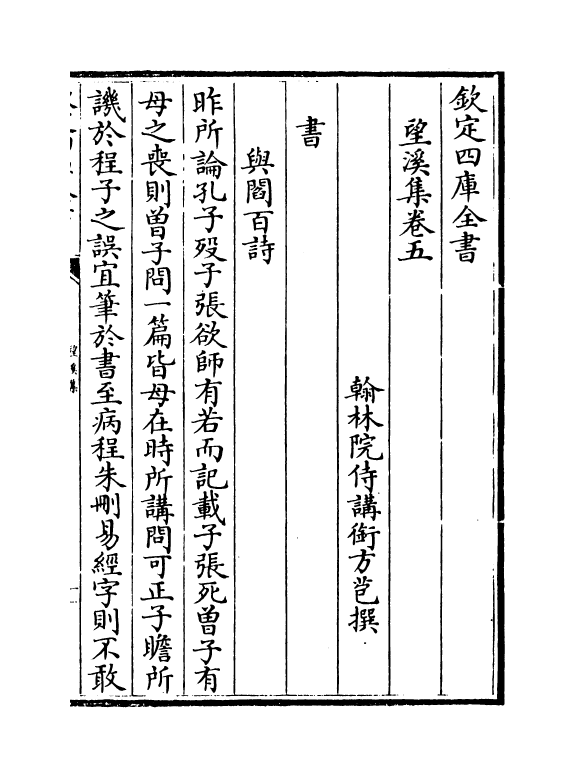 欽定四庫全書
望溪集卷五
翰林院侍講銜方苞撰
書
與閻百詩
昨所論孔子歿子張欲師有若而記載子張死曽子有
母之喪則曽子問一篇皆母在時所講問可正子瞻所
譏於程子之誤宜筆於書至病程朱刪易經字則不敢
望溪集